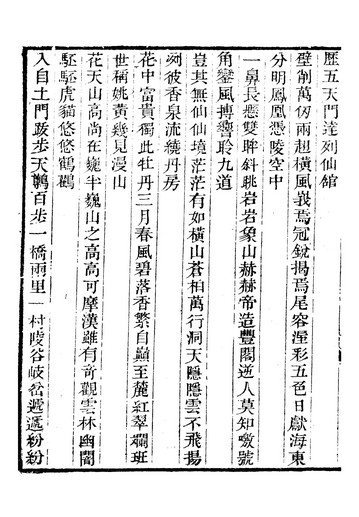 歷五天門達列仙館
壁削萬仞兩翅橫風嶷焉冠銳揭焉尾容溼彩五色日獻海東
分明鳳凰憑陵空中
一鼻長懸雙眸斜眺岩岩象山赫赫帝造豐閣逆人莫知噭號
角鑾風搏響聆九道
豈其無仙仙境茫茫有如橫山蒼柏萬行洞天隱隱雲不飛揚
冽彼香泉流繞丹房
花中富貴獨此牡丹三月春風碧落香繁自巔至麓紅翠斕班
世稱姚黃幾見漫山
花天山高尚在巍半巍山之高高可摩漢雖有奇觀雲林幽閟
駆駆虎貓悠悠鶴鸛
入自土門跬步天鷞百步一橋兩里一村陵谷岐嶅遞遞紛紛